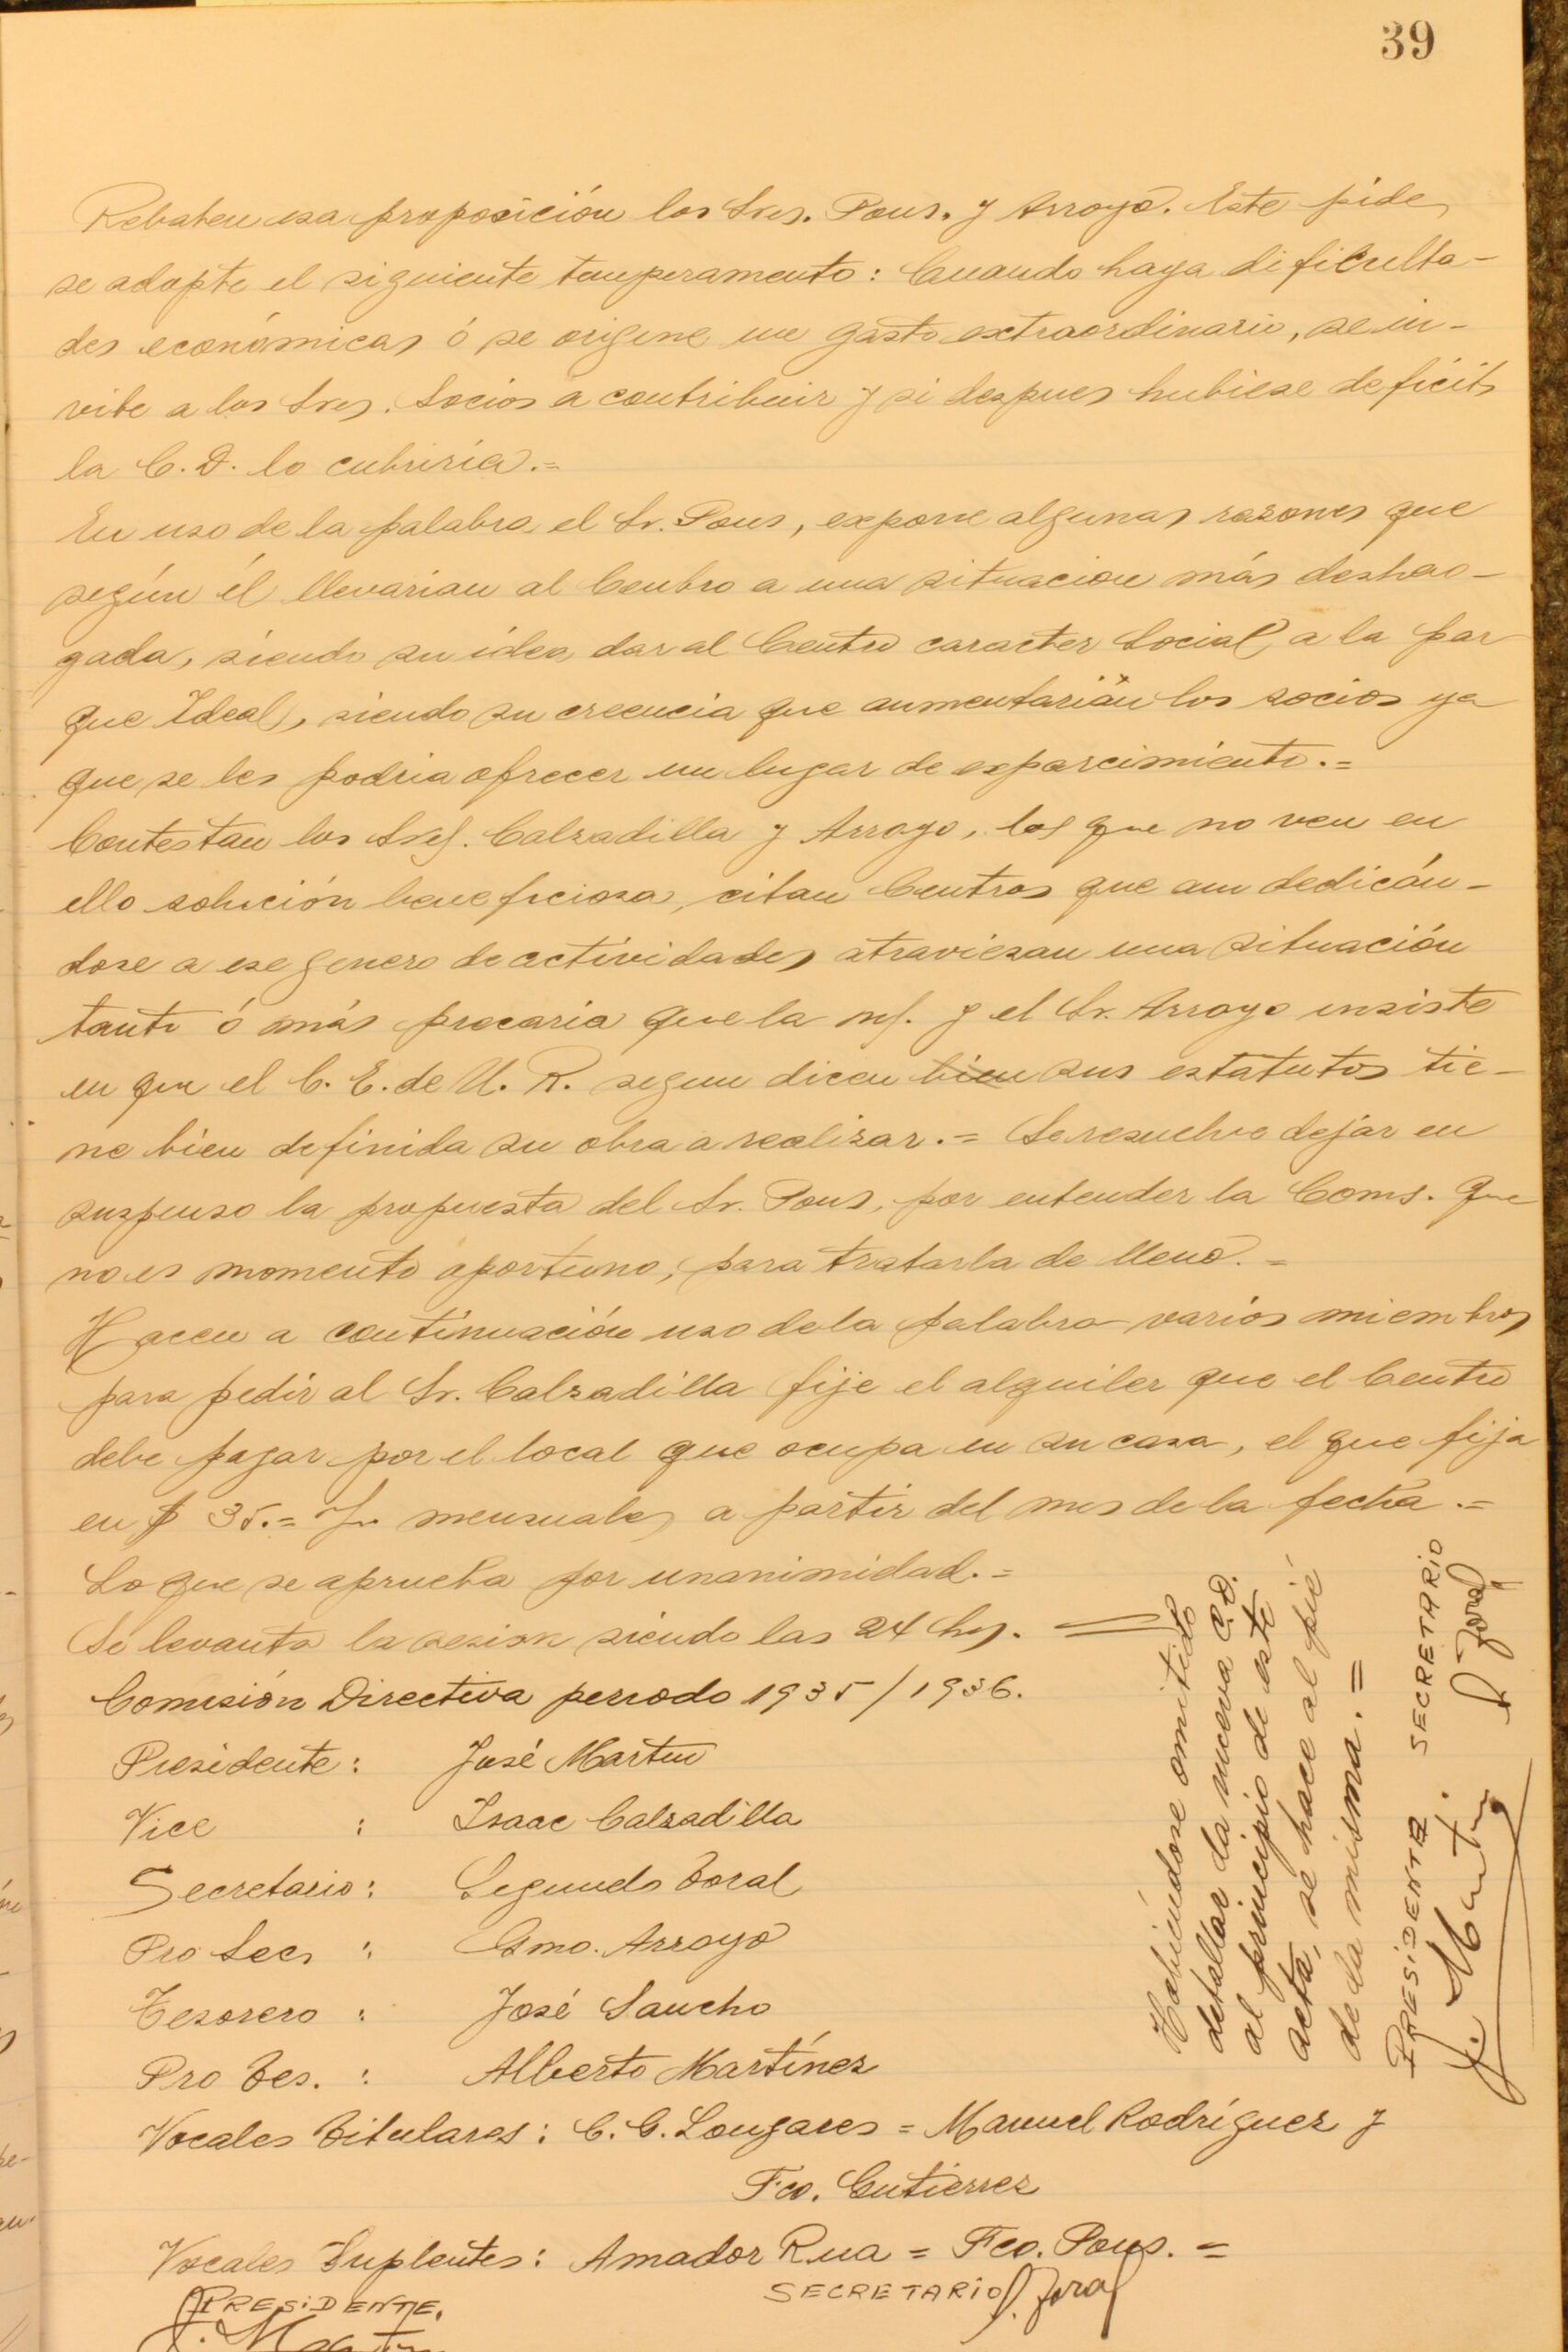 39
Rebaten esa proposición los Sres. Pous. y Arroyo. Este pide
se adopte el siguiente temperamento: Cuando haya dificulta-
des económicas ó se origine un gasto extraordinario, se in-
vite a los Sres. Socios a contribuir y si despues hubiese deficit,
la C. D. lo cubriría.=
En uso de la palabra el Sr. Pous, expone algunas razones que
según él llevarian al Centro a una situacion más deshao-
gada, siendo su idea dar al Centro caracter Social a la par
que Ideal, siendo su creencia que aumentarián los socios ya
que se les podria ofrecer un lugar de esparcimiento.=
Contestan los Sres. Calzadilla y Arroyo, los que no ven en
ello solución beneficiosa, citan Centros que aun dedicán-
dose a ese genero de actividades atraviesan una situación
tanto ó más precaria que la ns. y el Sr. Arroyo insiste
en que el C. E. de U. R. segun dicen bien sus estatutos tie-
ne bien definida su obra a realizar.= Se resuelve dejar en
suspenso la propuesta del Sr. Pous, por entender la Coms. que
no es momento oportuno, para tratarla de lleno.=
Hacen a continuación uso de la palabra varios miembros
para pedir al Sr. Calzadilla fije el alquiler que el Centro
debe pagar por el local que ocupa en su casa, el que fija
en $ 35.= mensuales a partir del mes de la fecha.=
Lo que se aprueba por unanimidad.=
Se levanta la sesion siendo las 24 hs. =
Comisión Directiva periodo 1935/1936.
Presidente: José Martin
Vice : Isaac Calzadilla
Secretario: Segundo Toral
Pro Sec : Gmo. Arroyo
Tesorero : José Sancho
Pro Tes. : Alberto Martínez
Vocales Titulares: C. G. Longares = Manuel Rodríguez y
Fco. Gutierrez
Vocales Suplentes: Amador Rua = Fco. Pous. =
PRESIDENTE. SECRETARIO S. Toral
J. Martin
Habiéndose omitido
detallar la nueva C.D.
al principio de este
acta, se hace al pié
de la misma.=
PRESIDENTE. SECRETARIO
J. Martin S. Toral